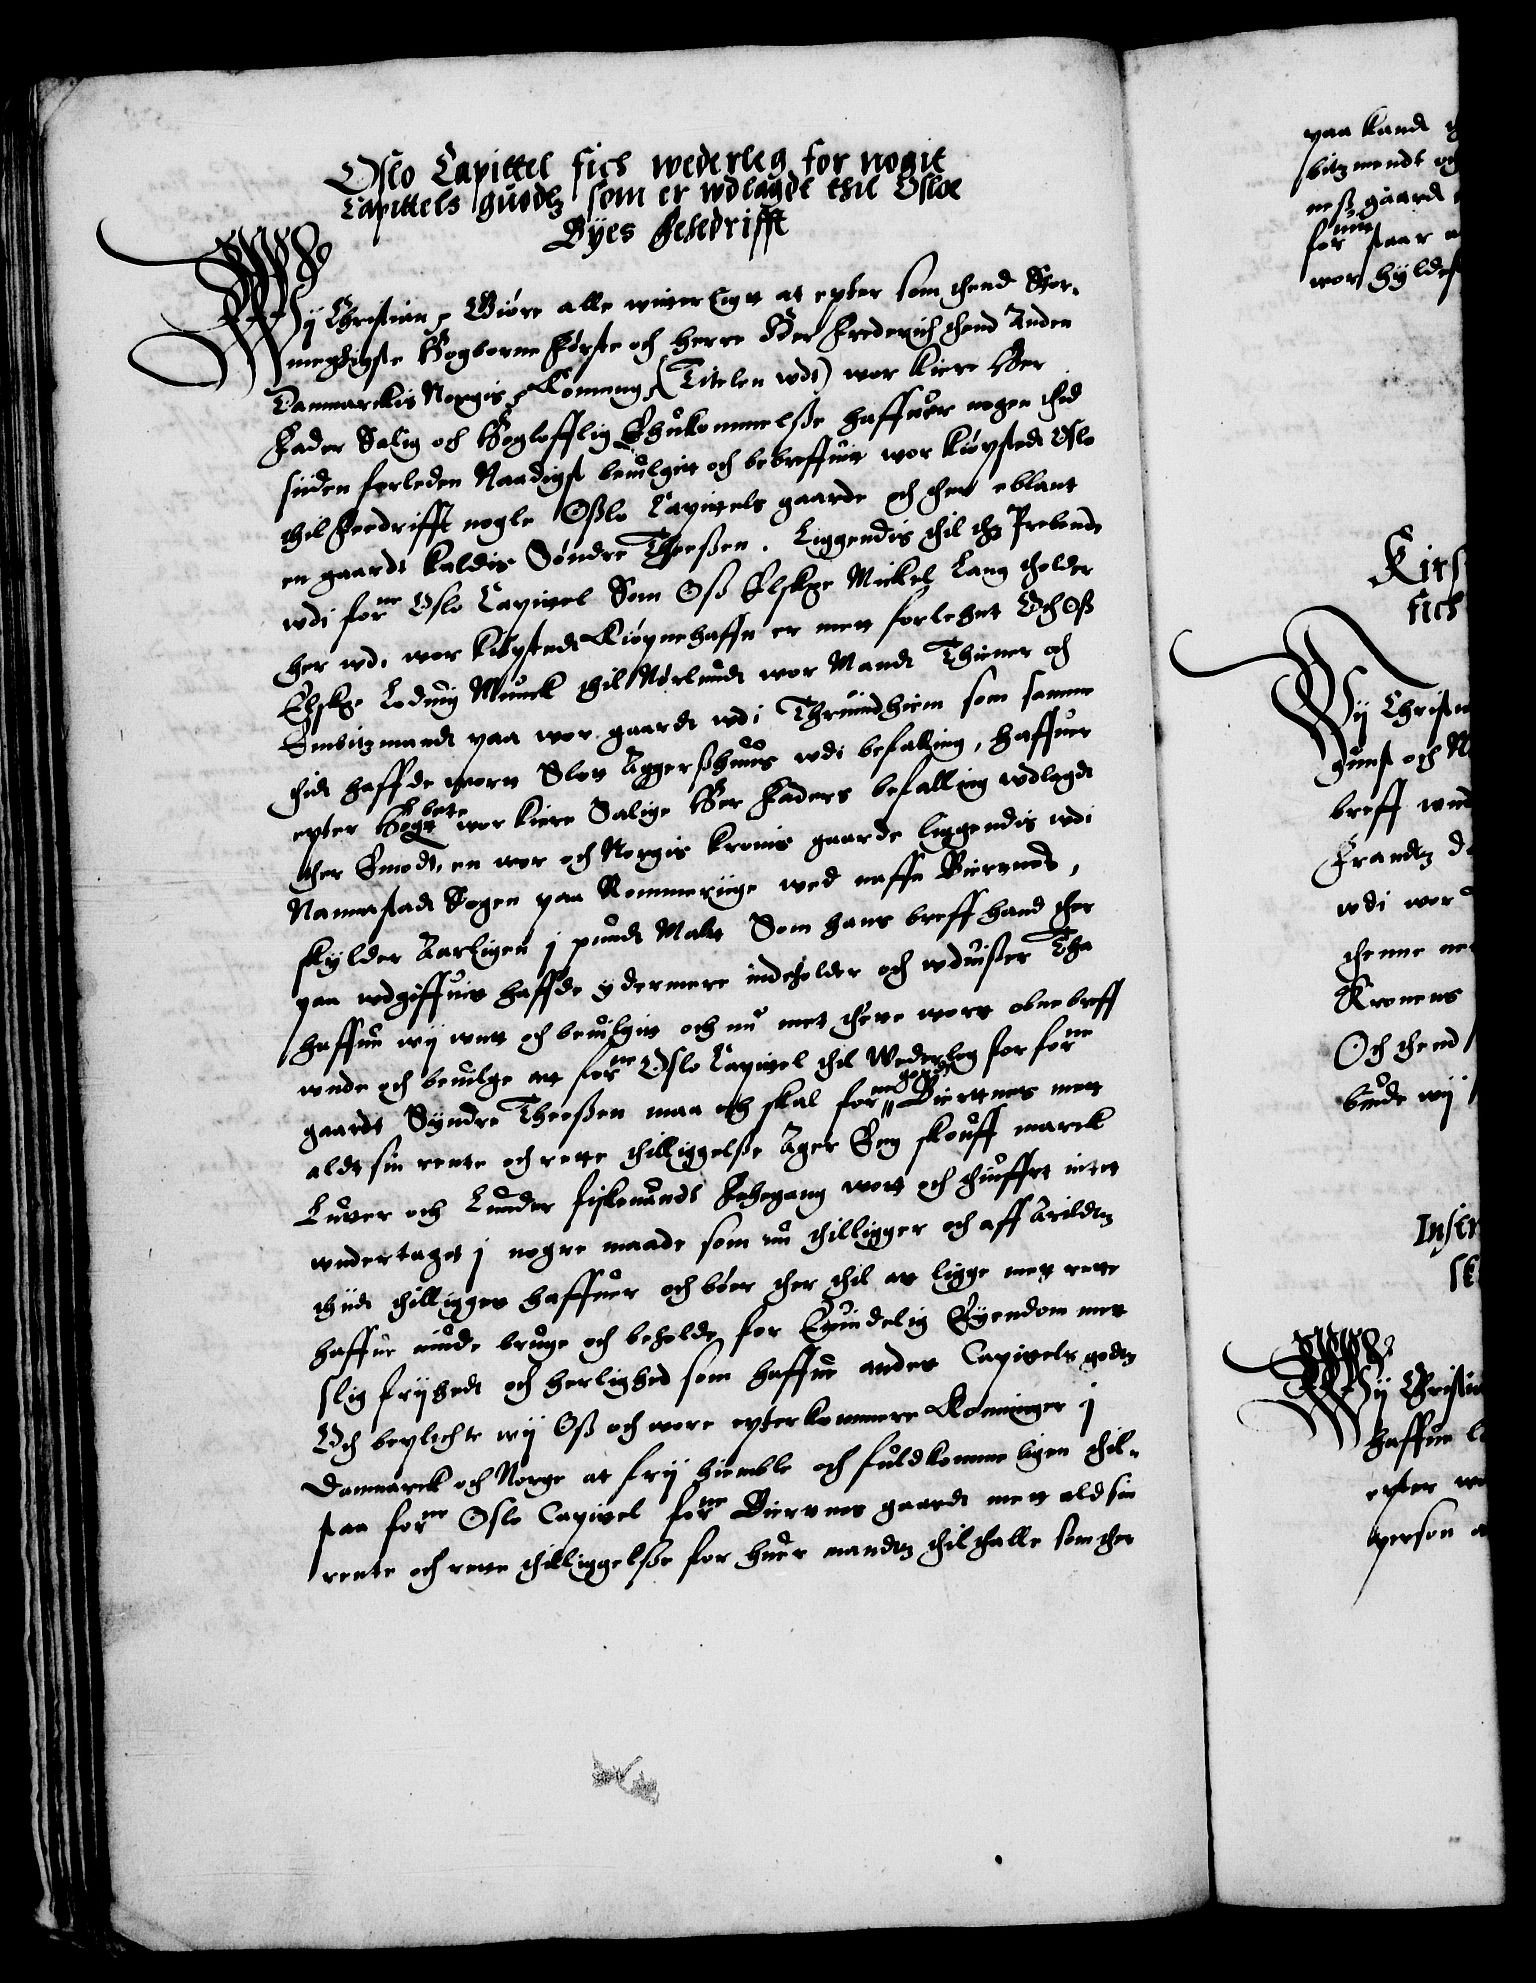 Oslo Capittel fich wederleg for nogit
Capittels guodtz som er wdlagdt thil Osloe
Byes Fehedrifft
Wij Christian etc Giøre alle witterligtt at epter som thend Stor-
megtigste Høgborne Første och Herre Her Frederich thend Anden
Danmarckis Norgis etc Konning (Titelen wdt) wor kiere Her
Fader Salig och Høglofflig Ihukommelsße haffuer nogen thid
siiden forleden Naadigst beuilgitt och bebreffuitt wor kiøpstedt Oslo
thil Feedrifft nogle Oßlo Capitels gaarde och ther eblant
en gaardt kaldis Søndre Theeßen. Liggendis thil thz Prebende
wdi forne Oslo Capittel Som Oß Elskelige Mickel Lang tholder
her wdi wor kiøpstedt Kiøpnehaffn er mett forlehnt Och Oß
Elskelige Loduig Munck thil Nørlundt wor Mandt Thiener och
Embitzmandt paa wor gaardt wdi Thrundhiem som samme
thidt haffde wortt Slott Aggerßhuus wdi befalling, haffuer
epter Høgbete wor kiere Salige Her Faders befalling wdlagdt
ther Emodt, en wor och Norgis kronis gaarde liggendis wdi
Nannestadt Sogen paa Rommeriige wed naffn Bierttnes,
skylder Aarligen j pundt Maltt Som hans breff hand ther
paa wdgiffuitt haffde ydermere indeholder och wduißer Tha
haffue wij wntt och beuilgitt och nu mett thette wortt obne breff
wnde och beuilge att forne Oslo Capitel thil Wederleg for forne
gaardt Syndre Theeßen maa och skal forne gord Bierttnes mett
aldt sin rente och rette thilliggelße Ager Eng skouff marck
Lutter och Lunder fiskeuandt Fehegang wott och thiufft intet
wndertaget j nogre maade som nu thilligger och aff Arildtz
thiidt thilligget haffuer och bøer ther thil at ligge mett rette
haffue niude bruge och beholde for Euindelig Eyendom mett
slig frijhedt och herlighed som haffue andet Capitels godtz
Och beplichte wij Oß och wore epterkommere Konninger j
Danmarck och Norge at frij hiemble och fuldkommeligen thil-
staa forne Oslo Capitel forne Bierttnes gaardt mett ald sin
rente och rette thilliggelße for huer mandtz thilthalle som ther
paa kandt
bitzmendt
neß gaardt
for nu staar
wor hyldest
Kirs
fich
Wij Christi
gunst och N
breff wnd
Frandtz
wdi wor
thenne
Kronens
Och thend
biude wij
Inser
sk
Wij Christi
haffue
epter
person